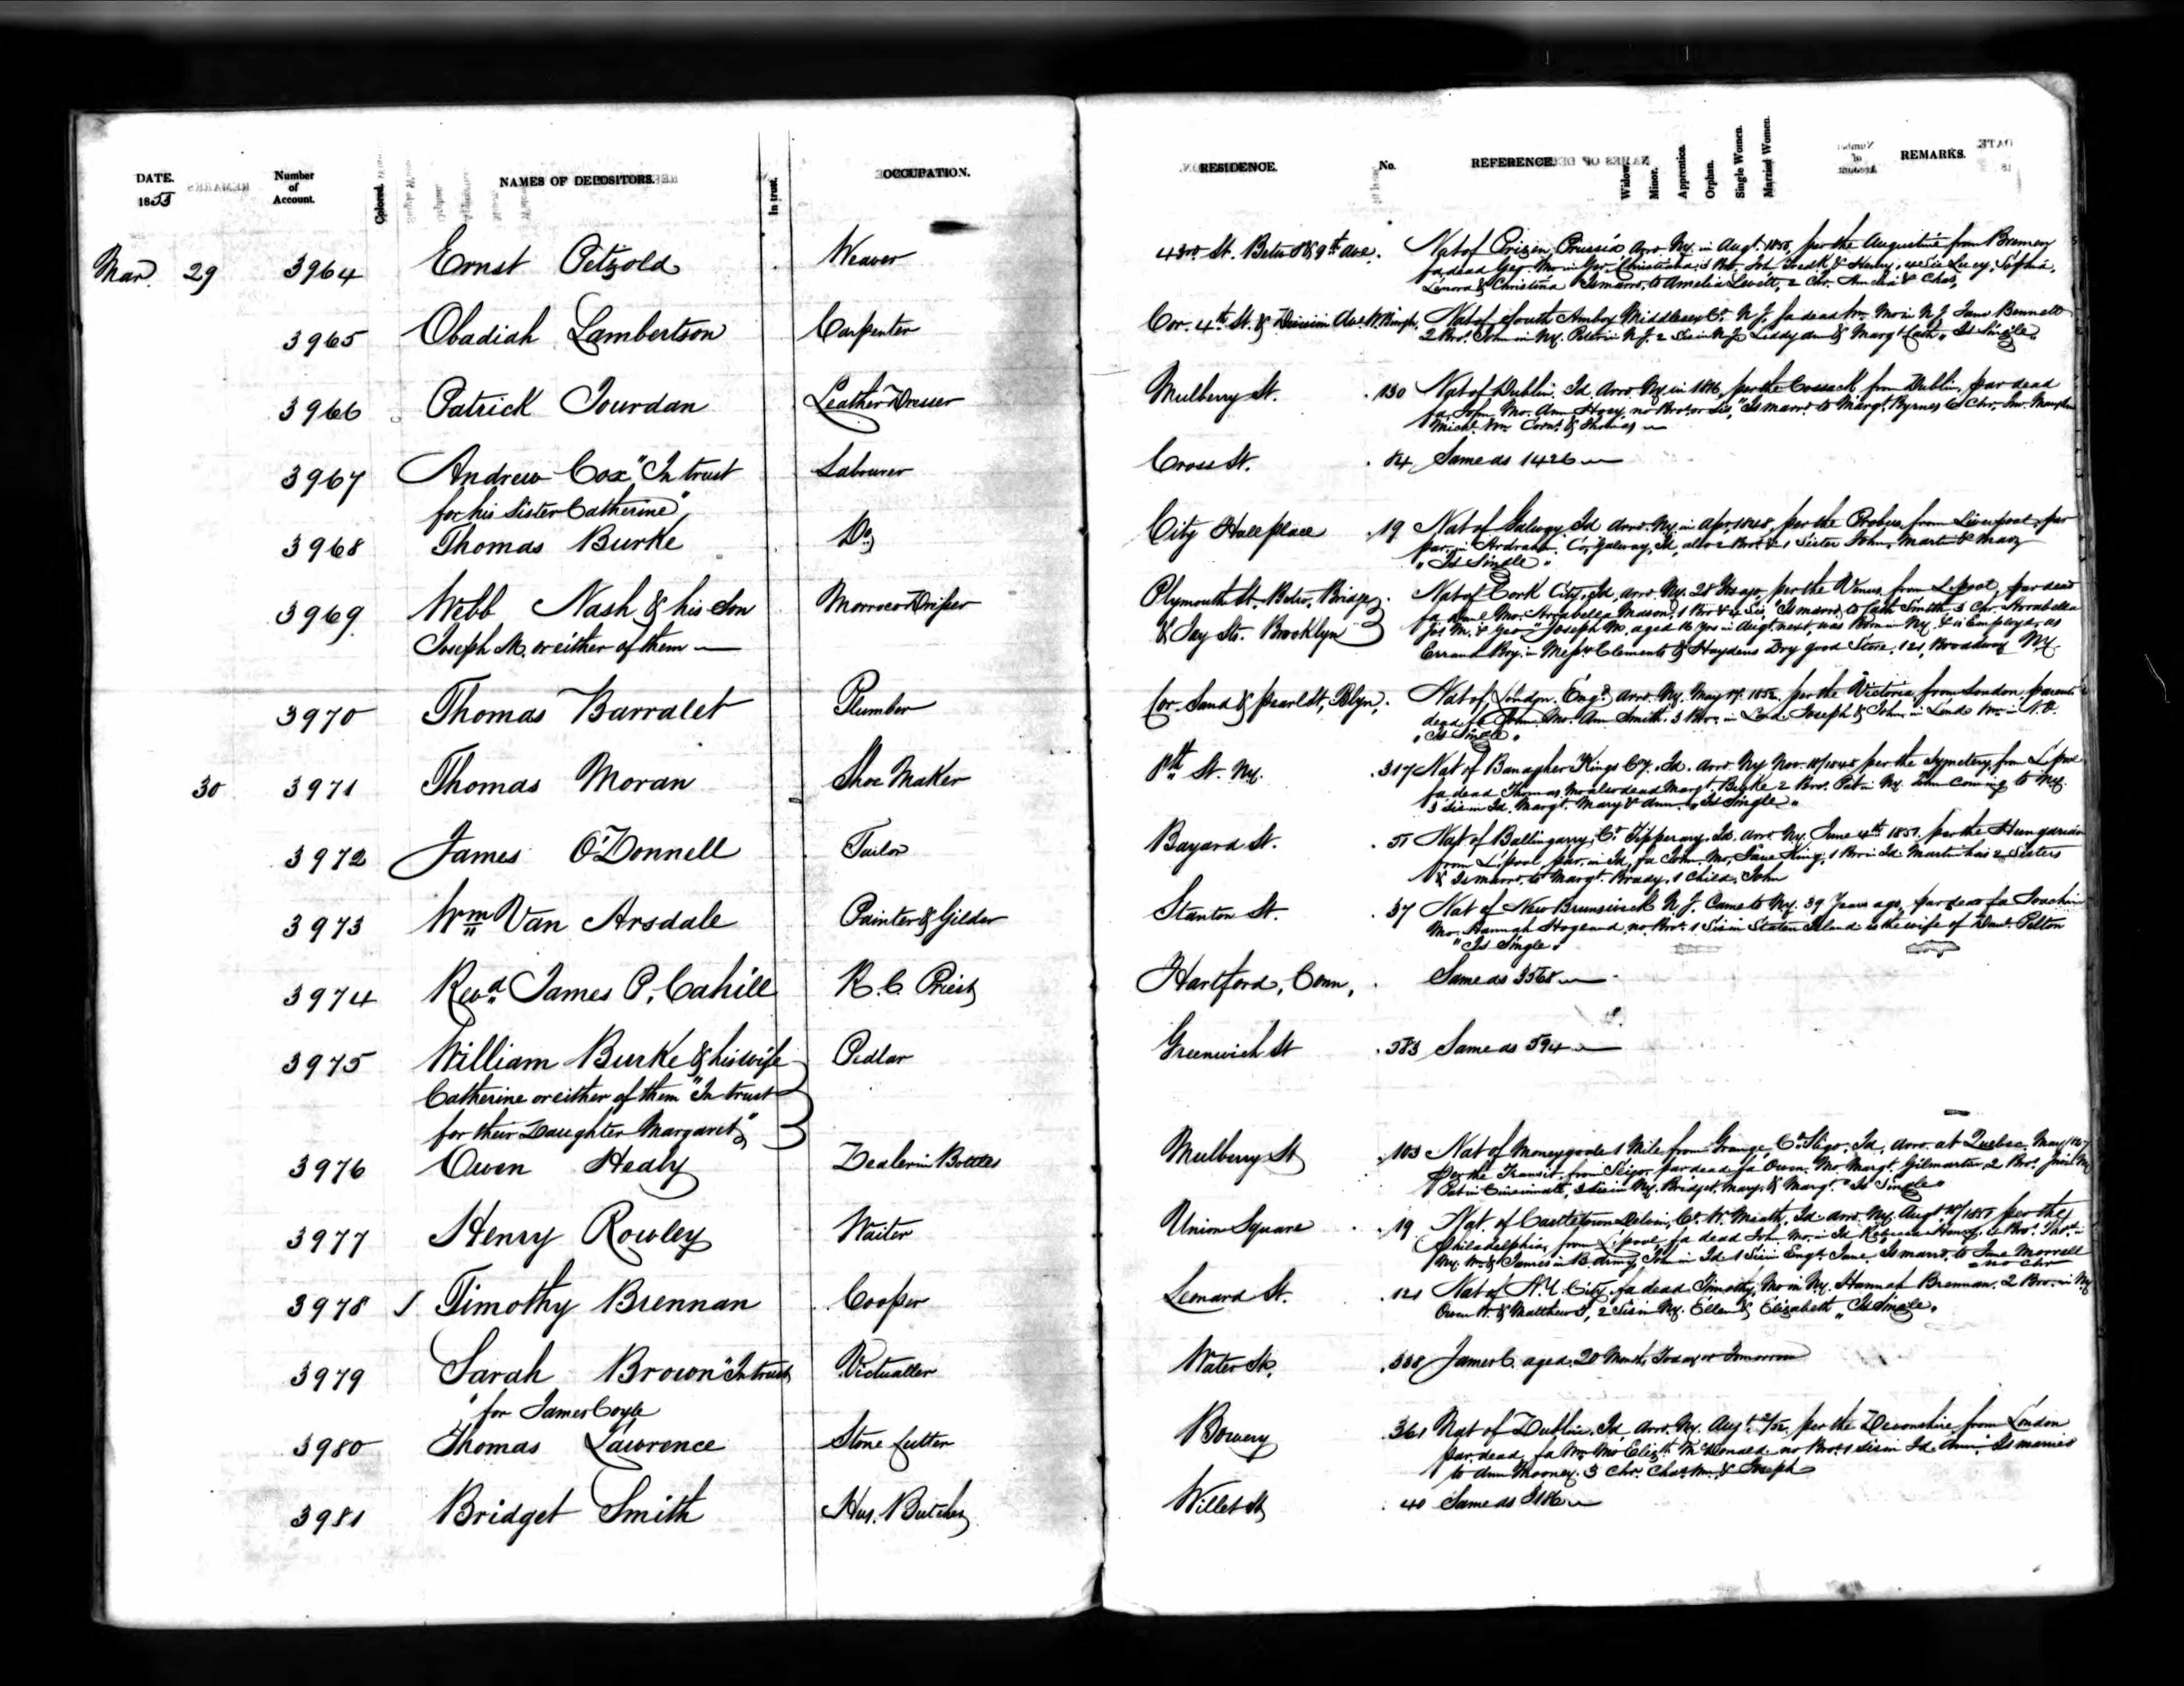 DATE. Number of Account. Colored. NAMES OF DEPOSITORS. In trust. OCCUPATION. RESIDENCE. No. REFERENCE. Widow. Minor. Apprentice. Orphan. Single Women. Married Women. REMARKS.
1853
Mar. 29 3964 Ernst Petzold Weaver 43rd St. Betw 8 & 9th Ave. Nat of Prussia, arrd. Ny. in Augt. 1850, per the Augustine from Bremen
fa. dead Geo. Mo in Ger. Christiana, 3 Bro. Joh Fredk. & Henry, 4 Sis Lucy, Sophia,
Lenora & Christina Is marrd. to Amelia Levett, 2 Chr. Amelia & Chas.
3965 Obadiah Lambertson Carpenter Cor. 4th St. & Division Ave. W.Burgh. Nat of South Amboy Middlesex Co. N J. fa dead Wm. Mo in N J. Jane Bennett
2 Bro. John in Ny. Peter in N J. 2 Sis in N Je Liddy Ann & Margt. Cath. "Is Single"
3966 Patrick Jourdan Leather Dresser Mulberry St. 130 Nat of Dublin Id. Arrd. Ny in 1816, per the Cossack from Dublin, par dead
fa. John, Mo. Ann Hoey, no Bro. or Sis, "Is marrd to Margt. Byrnes 6 Chr.
Michl. Wm. Corns. & Thomas
3967 Andrew Cox "In trust Labourer Cross St. 84 Same as 1426
for his Sister Catherine"
3968 Thomas Burke Do City Hall place 19 Nat of Galway Id arrd. Ny. in Apr. 1848, per the Probus from Liverpool, par
par. in Ardrahan, Co. Galway, Id, also 2 Bro. & 1 Sister John, Martin & Mary
"Is Single"
3969 Webb Nash & his Son Morroco Dresser Plymouth St. Betw. Bridge Nat of Cork City, Id, arrd. Ny. 28 Yrs ago, per the Venus from Lpool, par dead
Joseph M. or either of them & Jay Sts. Brooklyn fa Danl Mo. Arrabella Mason, 1 Bro & 2 Sis, "Is marrd. to Cath Smith, 3 Chr. Arrabella
Jos M. & Geo" Joseph M. aged 16 Yrs in Augt. next, was Born in Ny. & is Employd. as
Errand Boy in Messrs Clements & Haydens Dry good Store, 121, Broadway Ny.
3970 Thomas Barralet Plumber Cor. Sand & pearl St, Blyn. Nat of London, Engd. arrd. Ny. May 17. 1852, per the Victoria from London, parents
dead, fa John. Mo. Ann Smith. 3 Bro. in Lond. Joseph & John, in Lond Wm in N.O.
"Is Single"
30 3971 Thomas Moran Shoe Maker 8th St. Ny. 317 Nat of Banagher Kings Coy. Id. arrd. Ny Nov. 18/1848 per the Symetery from L'pool
fa dead Thomas, Mo also dead Margt. Burke 2 Bro. Pat in Ny. John coming to Ny.
3 Sis in Id. Margt. Mary & Ann. "Is Single"
3972 James O'Donnell Tailor Bayard St. 51 Nat of Ballingarry, Co. Tipperary, Id. arrd. Ny. June 4th 1851. per the Hungarian
from L'pool, par. in Id, fa John. Mo, Jane King, 1 Bro in Id Martin has 2 Sisters
& Is marrd. to Margt. Brady, 1 Child, John
3973 Wm Van Arsdale Painter & Gilder Stanton St. 37 Nat of New Brunswick N J. Came to Ny. 39 Years ago, par dead fa Joachim
Mo. Hannah Hogeand, no Bro. 1 Sis in Staten Island is the wife of Danl. Pelton
"Is Single"
3974 Revd. James P. Cahill R. C. Priest Hartford, Conn. Same as 3568
3975 William Burke & his wife Pedlar Greenwich St 383 Same as 594
Catherine or either of them "In trust
for their Daughter Margaret"
3976 Owen Healy Dealer in Bottles Mulberry St 103 Nat of Moneygoole 1 Mile from Grange, Co. Sligo. Id, arrd. at Quebec May 1847
per the Transit, from Sligo, par dead fa Owen. Mo. Margt. Gilmartin, 2 Bro. Jno in Ny
Pat in Cincinnatti, 3 Sis in Ny. Bridget, Mary, & Margt. "Is Single"
3977 Henry Rowley Waiter Union Square 19 Nat. of Castletown Delvin, Co. W. Meath, Id. arrd. Ny. Augt. 18/1851 per the
Philadelphia, from L'pool, fa dead John, Mo. in Id Rebecca Henry, 4 Bro. Thos. in
Ny. Wm. & James in B. Army, John in Id. 1 Sis in Engd. Jane, Is marrd. to Jane Morrell
no chr
3978 Timothy Brennan Cooper Leonard St. 121 Nat of N.Y. City. fa dead Timothy, Mo in Ny. Hannah Brennan. 2 Bro. in Ny
Owen W. & Matthew J, 2 Sis in Ny. Ellen & Elizabeth "Is Single"
3979 Sarah Brown "In trust Victualler Water St. 338 James C. aged 20 Months Today or Tomorrow
for James Coyle
3980 Thomas Lawrence Stone Cutter Bowery 361 Nat of Dublin. Id, Arrd. Ny. Augt. 2/52. per the Devonshire from London
par. dead, fa Wm Mo Elizth. McDonald. no Bro. 1 Sis in Id. Ann. Is married
to Ann Mooney. 3 Chr. Chas. Wm. & Joseph
3981 Bridget Smith Hus. Butcher Willet St 40 Same as 3186